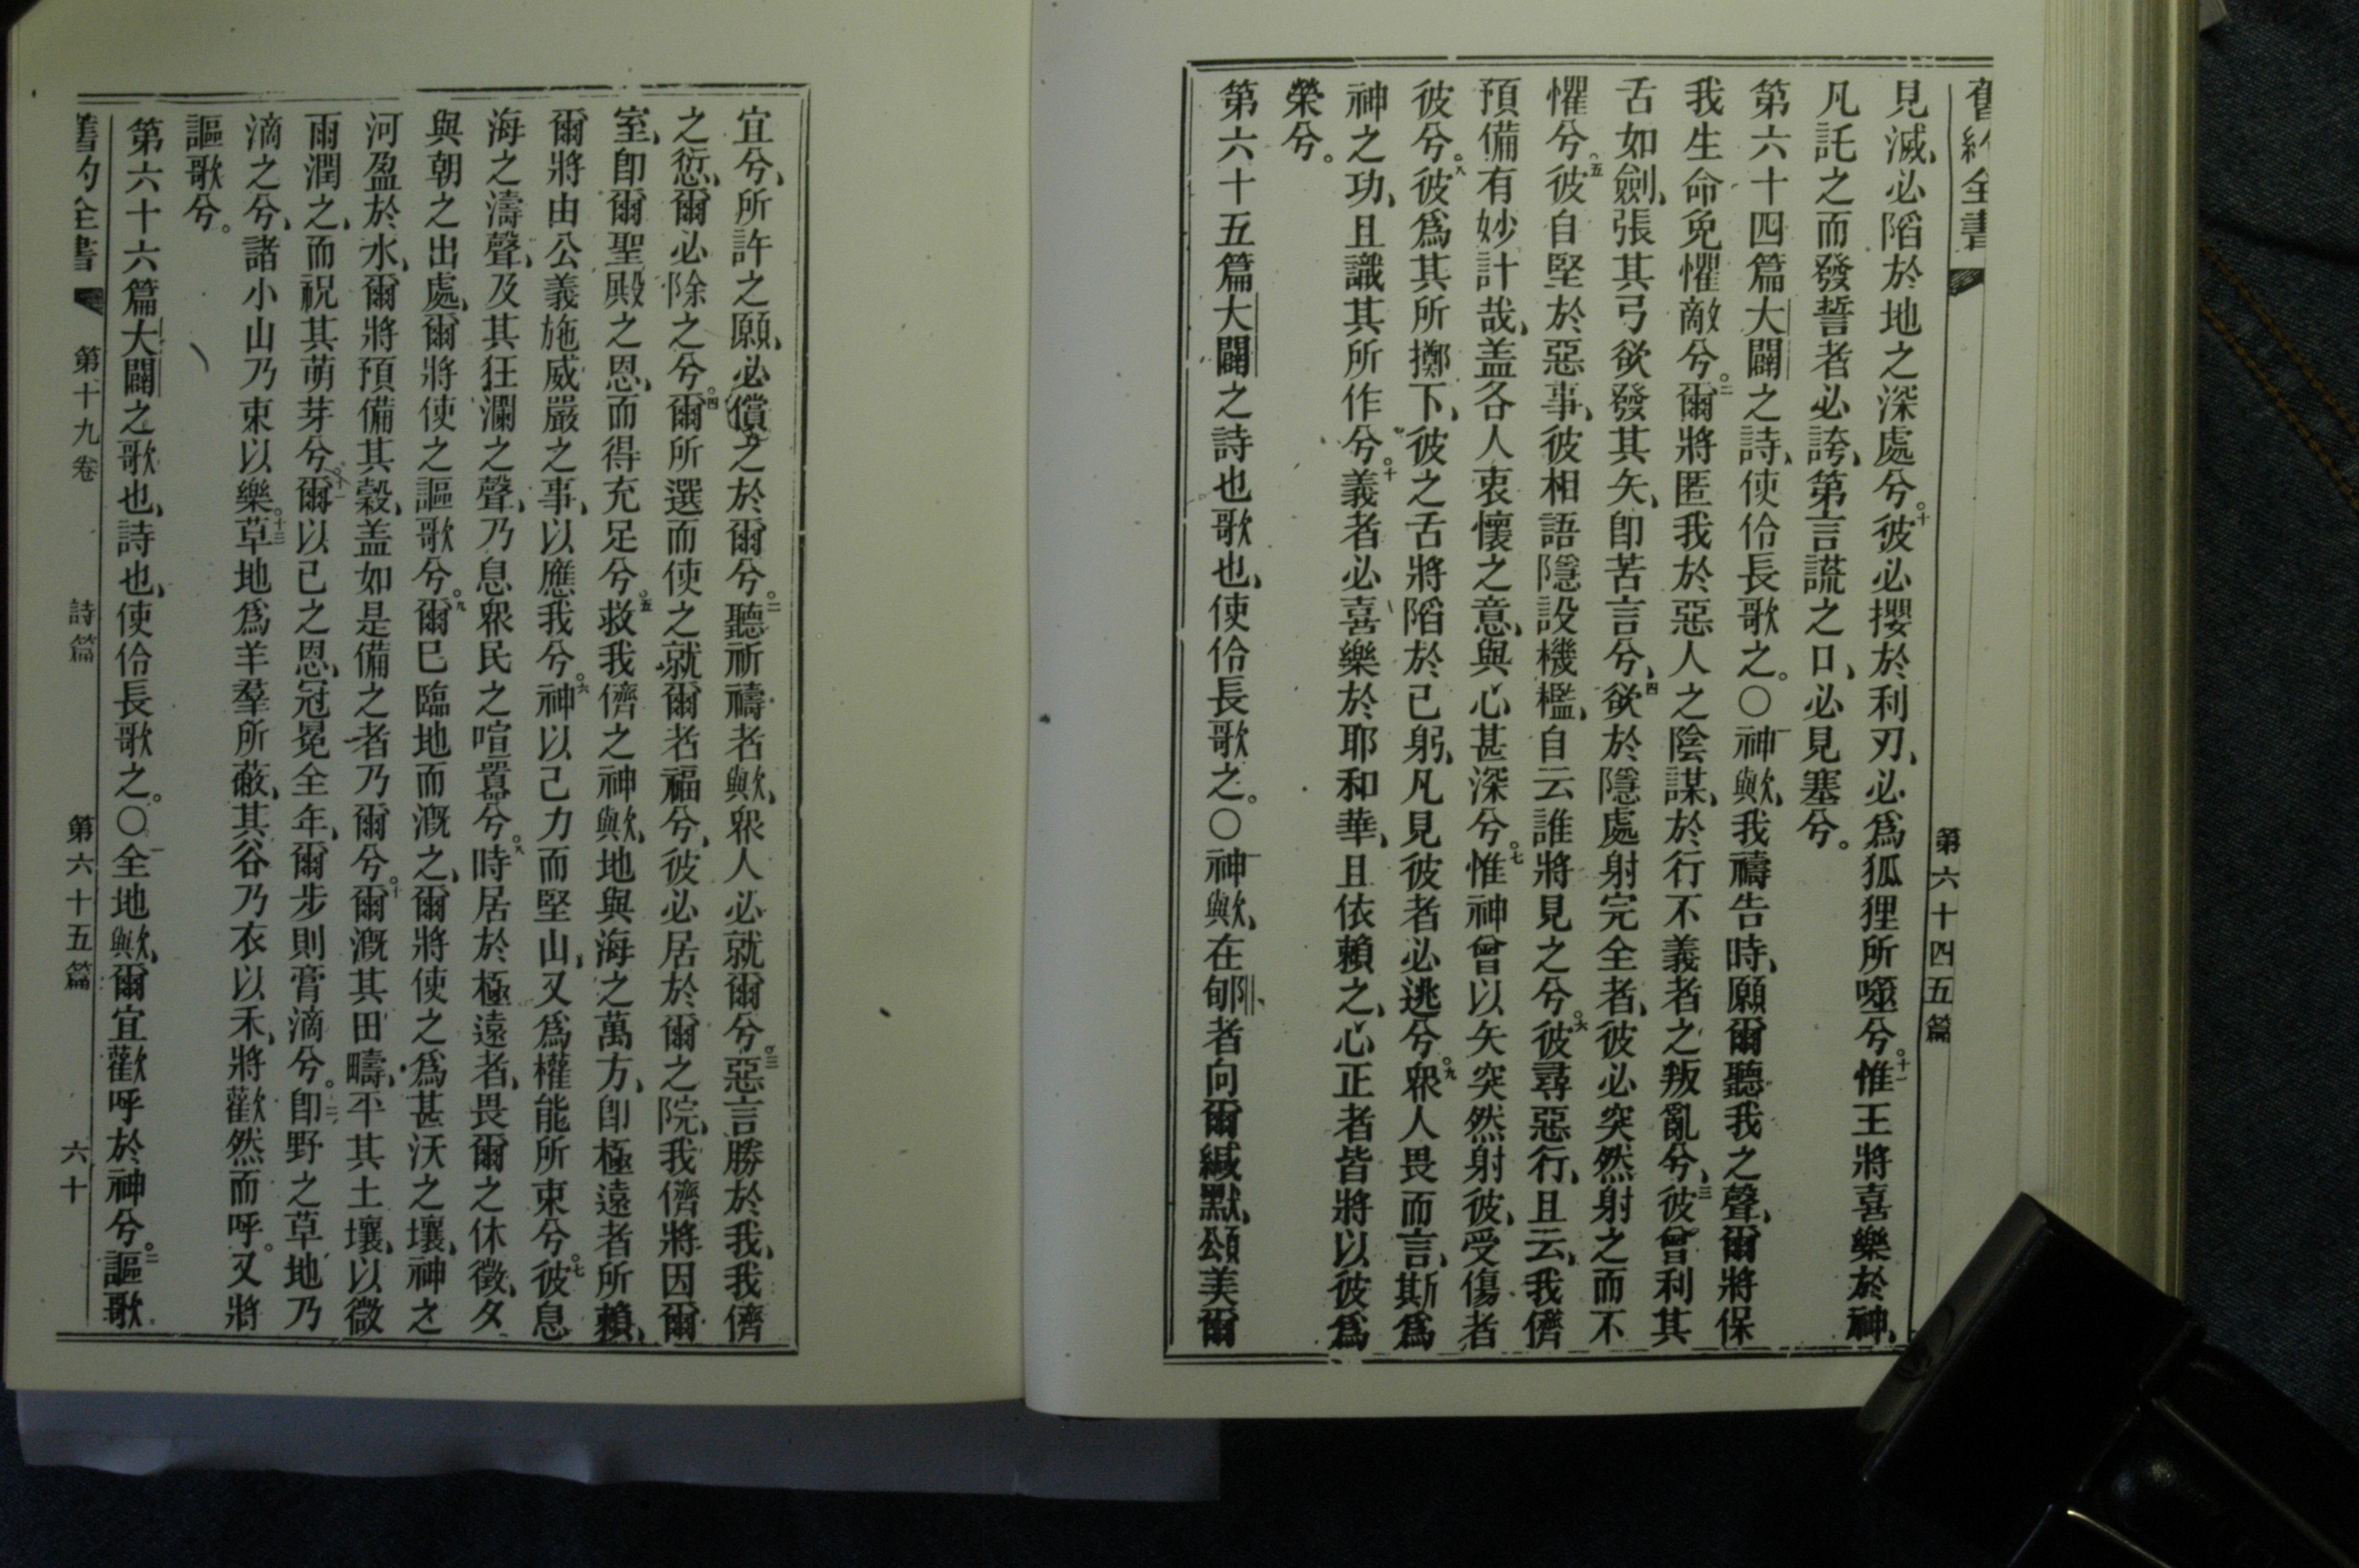 舊約全書 第六十四五篇
見滅、必陷於地之深處兮。十彼必攖於利刃、必爲狐狸所噬兮。十一惟王將喜樂於神、
凡託之而發誓者必誇、第言謊之口、必見塞兮。
第六十四篇大闢之詩、使伶長歌之。〇一神歟、我禱告時、願爾聽我之聲、爾將保
我生命免懼敵兮。二爾將匿我於惡人之陰謀、於行不義者之叛亂兮、三彼曾利其
舌如劍、張其弓欲發其矢、卽苦言兮、四欲於隱處射完全者、彼必突然射之而不
懼兮。五彼自堅於惡事、彼相語隱設機檻、自云誰將見之兮。六彼尋惡行、且云、我儕
預備有妙計哉、盖各人衷懷之意、與心甚深兮。七惟神曾以矢突然射彼、受傷者
彼兮。八彼爲其所擲下、彼之舌將陷於己躬、凡見彼者必逃兮。九眾人畏而言、斯爲
神之功、且識其所作兮。十義者必喜樂於耶和華、且依賴之、心正者皆將以彼爲
榮兮。
第六十五篇大闢之詩也歌也、使伶長歌之。〇一神歟、在郇者向爾緘默、頌美爾
宜兮、所許之願、必償之於爾兮。二聽祈禱者歟、眾人必就爾兮。三惡言勝於我、我儕
之愆、爾必除之兮。四爾所選而使之就爾者福兮、彼必居於爾之院、我儕將因爾
室、卽爾聖殿之恩、而得充足兮。五救我儕之神歟、地與海之萬方、卽極遠者所賴、
爾將由公義施威嚴之事、以應我兮。六神以己力而堅山、又爲權能所束兮。七彼息
海之濤聲、及其狂瀾之聲、乃息眾民之喧囂兮。八時居於極遠者、畏爾之休徵、夕
與朝之出處、爾將使之謳歌兮。九爾已臨地而溉之、爾將使之爲甚沃之壤、神之
河盈於水、爾將預備其穀、盖如是備之者乃爾兮。十爾溉其田疇、平其土壤、以微
雨潤之、而祝其萌芽兮。十一爾以己之恩、冠冕全年、爾步則膏滴兮。十二卽野之草地乃
滴之兮、諸小山乃束以樂。十三草地爲羊羣所蔽、其谷乃衣以禾、將歡然而呼。又將
謳歌兮。
第六十六篇大闢之歌也、詩也、使伶長歌之。〇一全地歟、爾宜歡呼於神兮。二謳歌
舊約全書 第十九卷 詩篇 第六十五篇 六十